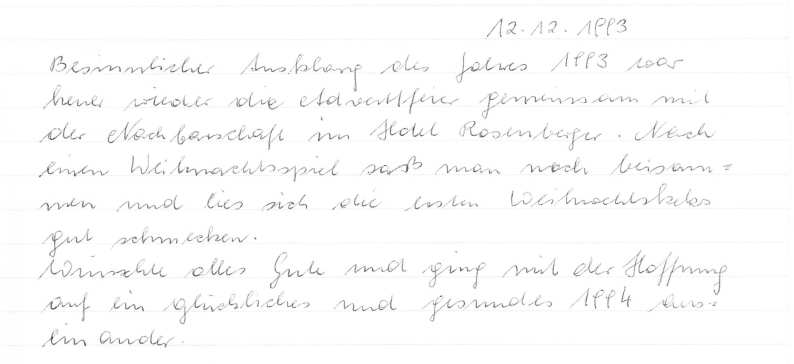 12.12.1993
Besinnlicher Ausklang des Jahres 1993 war
heuer wieder die Adventfeier gemeinsam mit
der Nachbarschaft im Hotel Rosenberger. Nach
einen Weihnachtsspiel saß man noch beisam=
men und lies sich die ersten Weihnachtskeks
gut schmecken.
Wünschte alles Gute und ging mit der Hoffnung
auf ein glückliches und gesundes 1994 aus=
einander.